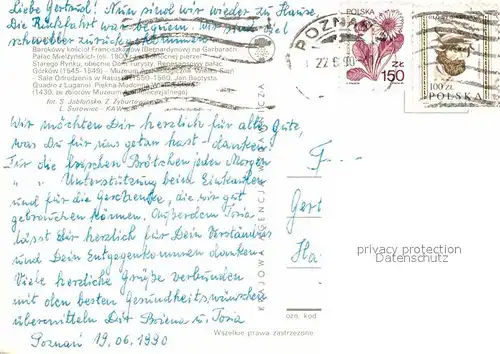 Liebe Gertrud! Nun sind wir wieder zu Hause.
Die Rückfahrt war bequem, wir sind viel
schneller zurückgekommen.
Barokowy kościół Franciszkanów (Bernardynów) na Garbarach
Pałac Mielżyńskich (ok. 1800)
Starego Rynku, obecnie Dom Turysty. Renesansowy pałac
Górków (1545-1549) - Muzeum Archeologiczne "Wielki Bun"
Sala Odrodzenia w Ratuszu (1550-1560, Jan Baptysta
Quadro z Lugano). Piękna Madonna
(1430, ze zbiorów Muzeum Archidiecezjalnego)
fot. S. Jabłońska, Z. Żyburtowicz
L. Surowiec - KAW
Wir möchten Dir herzlich für alles Gute,
was Du für uns getan hast - danken.
Für die frischen Brötchen jeden Morgen
" " Unterstützung beim Einkaufen
und für die Geschenke, die wir gut
gebrauchen können. Außerdem Tosia
lässt Dir herzlich für Dein Verständnis
und Dein Entgegenkommen danken.
Viele herzliche Grüße verbunden
mit den besten Gesundheitswünschen
übermitteln Dir Bożena u. Tosia
Poznań 19.06.1990
KRAJOWA AGENCJA WYDAWNICZA
POZNAŃ
22.6.90
POLSKA
150 ZŁ
100 ZŁ
POLSKA
F...
Gert
Ha
privacy protection
Datenschutz
ozn. kod
Wszelkie prawa zastrzeżone